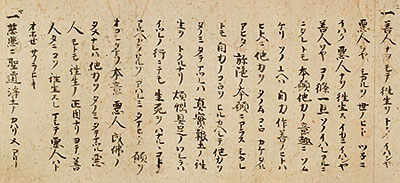 一善人ナヲモテ往生ヲトクイハンヤ
悪人ヲヤシカルヲ世ノヒトツネニ
イハク悪人ナヲ往生スイカニイハンヤ
善人ヲヤコノ條一旦ソノイハレアルニ
ニタレトモ本願他力ノ意趣ニソム
ケリソノユヘハ自力作善ノヒトハ
ヒトヘニ他力ヲタノムコヽロカケタル
アヒタ弥陀ノ本願ニアラスシカレ
トモ自力ノコヽロヲヒルカヘシテ他力ヲ
タノミタテマツレハ真實報土ノ往
生ヲトクルナリ煩惱具足ノワレラハ
イツレノ行ニテモ生死ヲハナルヽコト
アルヘカラサルヲアハレミタマヒテ願ヲ
オコシタマフ本意悪人成佛ノ
タメナレハ他力ヲタノミタテマツル悪
人モトモ往生ノ正因ナリヨテ善
人タニコソ往生スレマシテ悪人ハト
オホセサフラヒキ
一慈悲ニ聖道浄土ノカハリメアリ